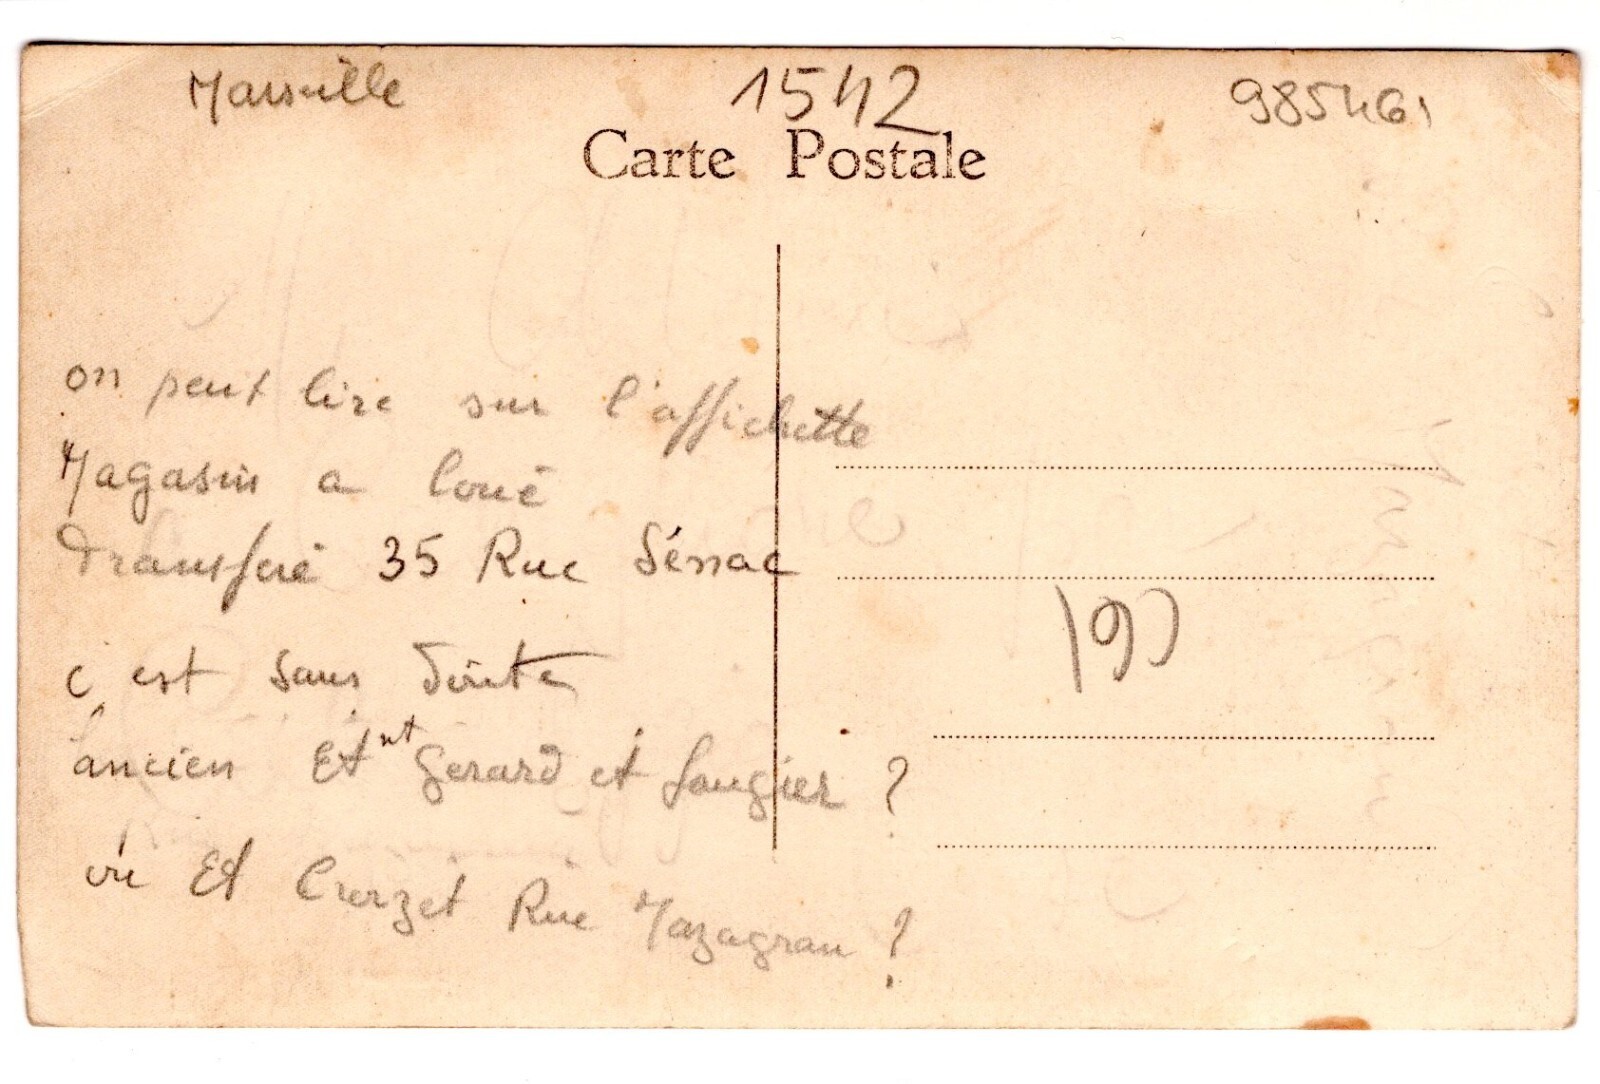 Marseille
1542
985461
Carte Postale
on peut lire sur l'affichette
Magasin a loué
Transferé 35 Rue Sénac
c'est sans doute
l'ancien Etnt Gerard et Fougier ?
ou Et Crozet Rue Mazagran ?
190